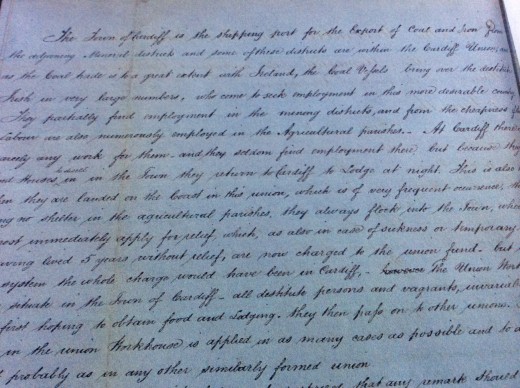 The Town of Cardiff is the shipping port for the Export of Coal and Iron from
the adjoining Mineral districts and some of these districts are within the Cardiff Union, and
as the Coal trade is to a great extent with Ireland, the Coal Vessels bring over the destitute
Irish in very large numbers, who come to seek employment in this more desirable country
They partially find employment in the mining districts, and from the cheapness of
Labour are also numerously employed in the Agricultural parishes. - At Cardiff there is
any work for them and they seldom find employment there but because they
Houses, in in the Town they return to Cardiff to Lodge at night. This is also
they are landed on the Coast in this union, which is of very frequent occurrence,
no shelter in the agricultural parishes, they always flock into the Town, where
immediately apply for relief, which, as also in case of sickness or temporary
lived 5 years without relief, are now charged to the union fund. but
system the whole charge would have been in Cardiff, - however The Union Work
situate in the Town of Cardiff - all destitute persons and vagrants, invariably
first hoping to obtain food and Lodging. they then pass on to other unions.
in the union Workhouse is applied in as many cases as possible and to
probably as in any other similarly formed union
that any remark should